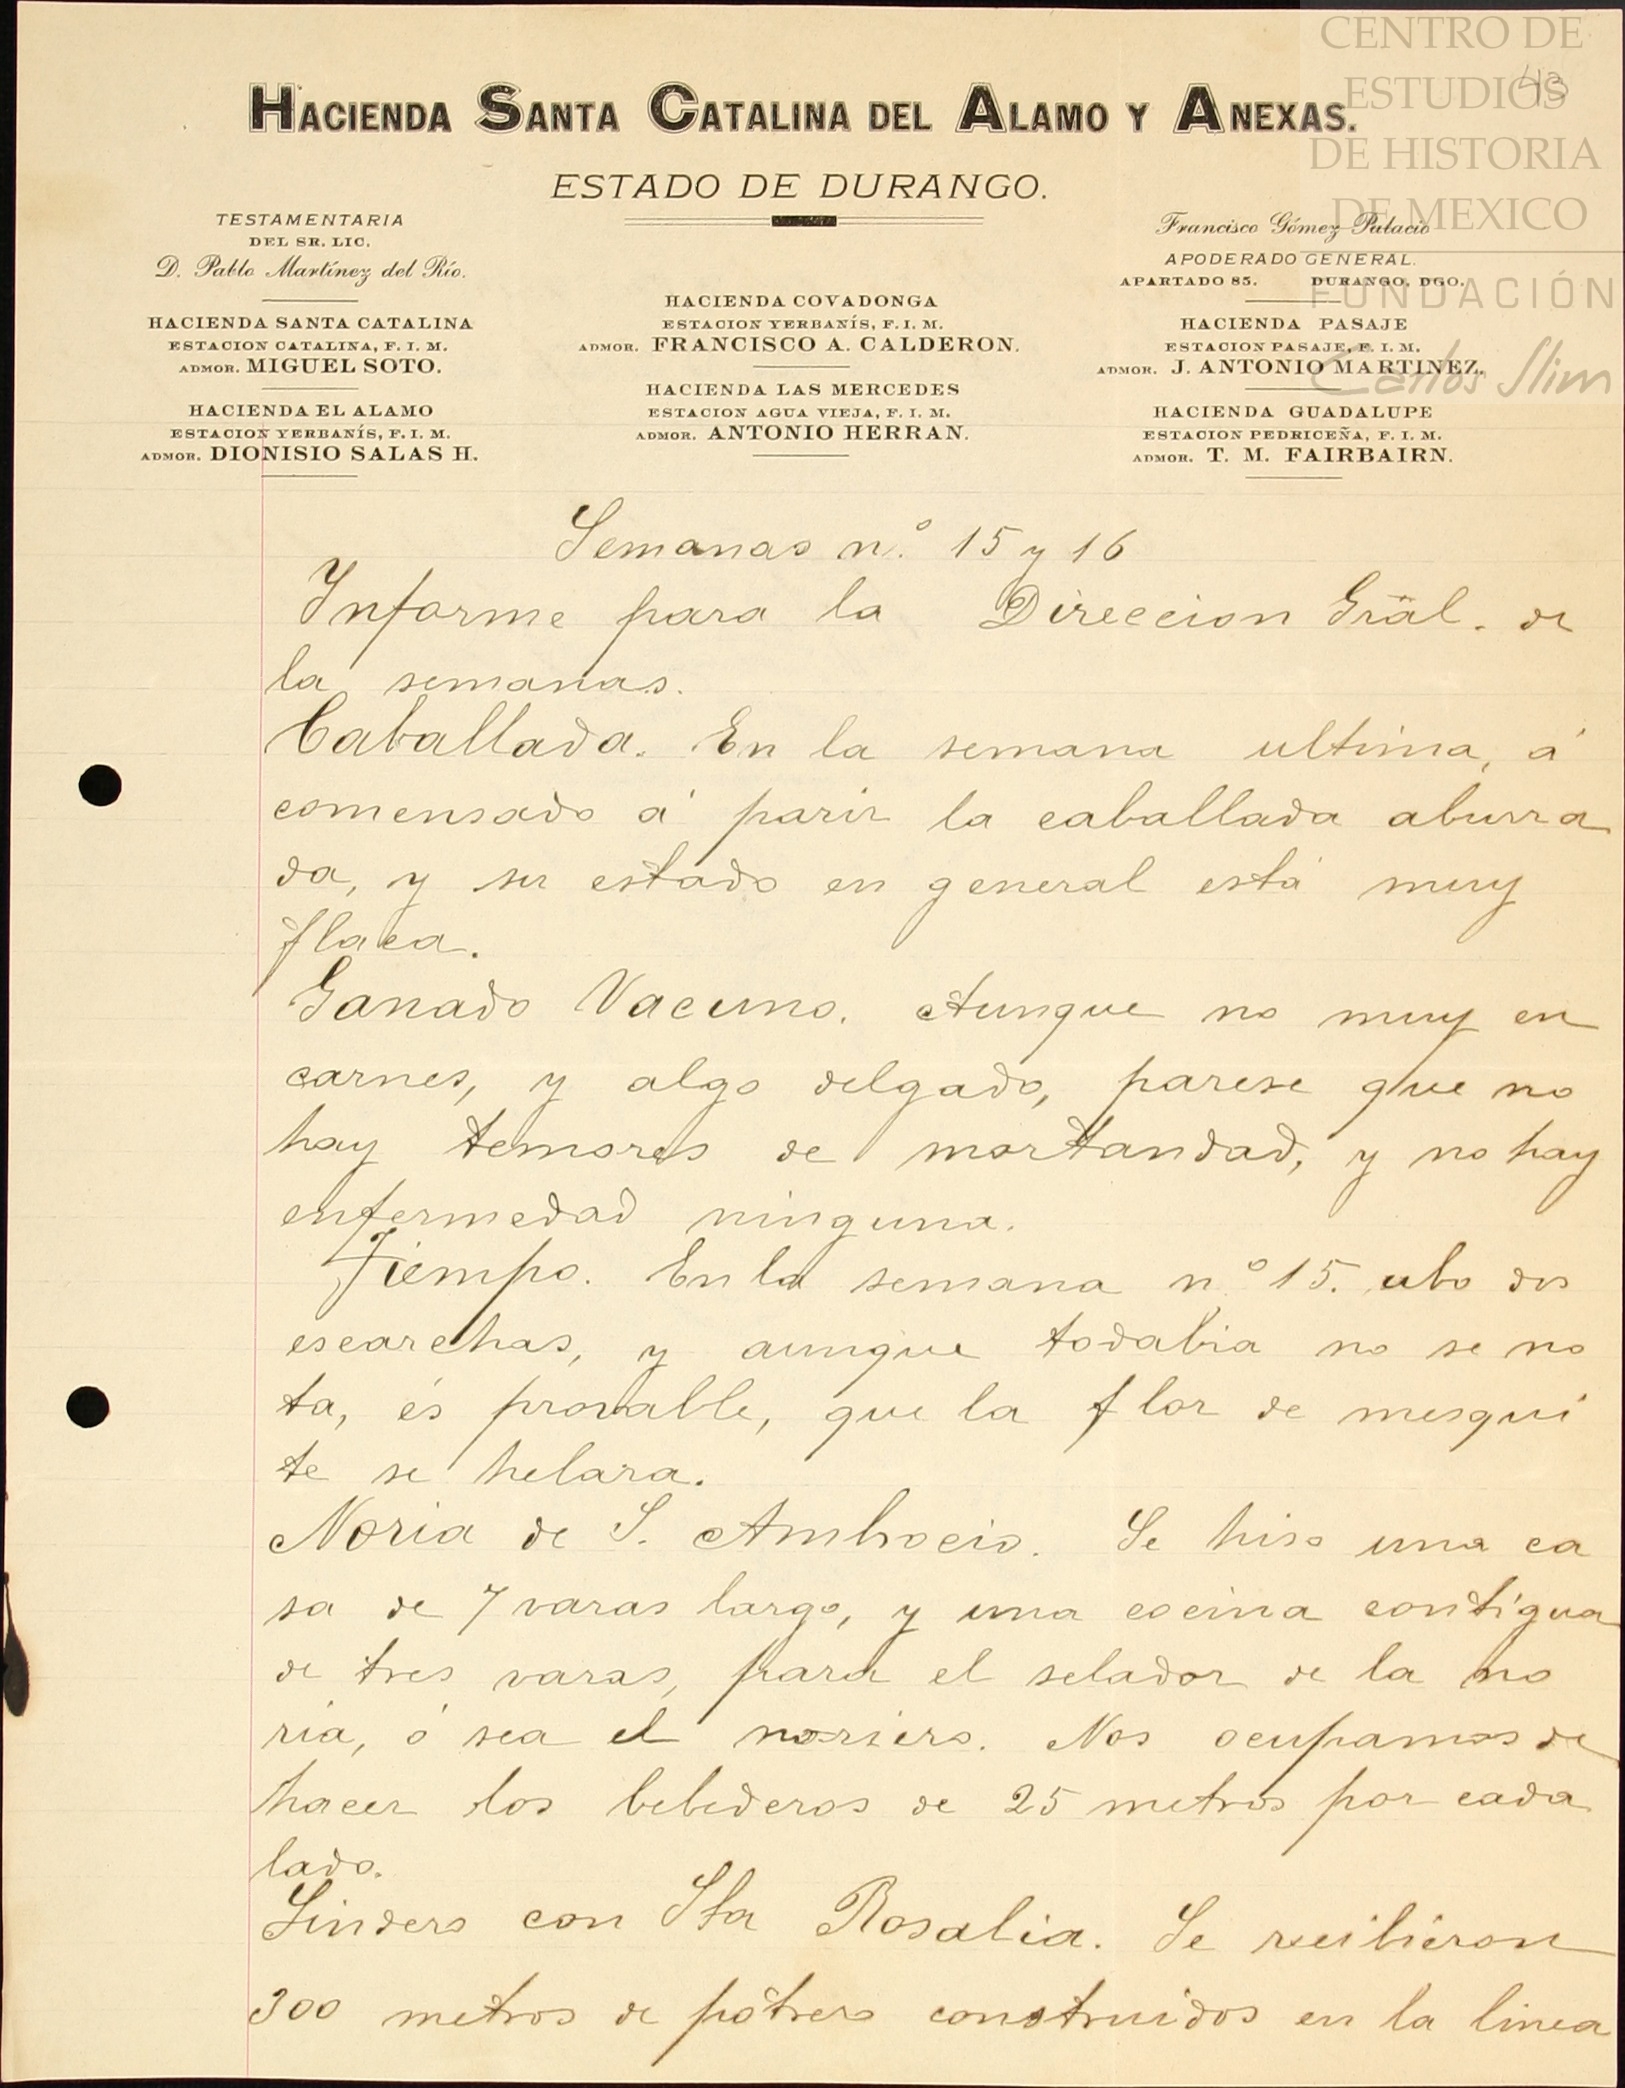 CENTRO DE
ESTUDIOS
DE HISTORIA
DE MEXICO
FUNDACIÓN
Carlos Slim
43
HACIENDA SANTA CATALINA DEL ALAMO Y ANEXAS.
ESTADO DE DURANGO.
TESTAMENTARIA
DEL SR. LIC.
D. Pablo Martínez del Río.
HACIENDA SANTA CATALINA
ESTACION CATALINA, F. I. M.
ADMOR. MIGUEL SOTO.
HACIENDA EL ALAMO
ESTACION YERBANÍS, F. I. M.
ADMOR. DIONISIO SALAS H.
HACIENDA COVADONGA
ESTACION YERBANÍS, F. I. M.
ADMOR. FRANCISCO A. CALDERON.
HACIENDA LAS MERCEDES
ESTACION AGUA VIEJA, F. I. M.
ADMOR. ANTONIO HERRAN.
Francisco Gómez Palacio
APODERADO GENERAL.
APARTADO 85. DURANGO, DGO.
HACIENDA PASAJE
ESTACION PASAJE, F. I. M.
ADMOR. J. ANTONIO MARTINEZ.
HACIENDA GUADALUPE
ESTACION PEDRICEÑA, F. I. M.
ADMOR. T. M. FAIRBAIRN.
Semanas n.º 15 y 16
Informe para la Direccion Gral. de
la semanas.
Caballada. En la semana ultima, á
comensado á parir la caballada aburra
da, y su estado en general está muy
flaca.
Ganado Vacuno. Aunque no muy en
carnes, y algo delgado, parese que no
hay temores de mortandad, y no hay
enfermedad ninguna.
Tiempo. En la semana n.º 15. ubo dos
escarchas, y aunque todabia no se no
ta, és provable, que la flor de mesqui
te se helara.
Noria de S. Ambrocio. Se hiso una ca
sa de 7 varas largo, y una cocina contigua
de tres varas, para el selador de la no
ria, ó sea el noriero. Nos ocupamos de
hacer los bebederos de 25 metros por cada
lado.
Lindero con Sta Rosalia. Se recibieron
300 metros de pótrero construidos en la linea